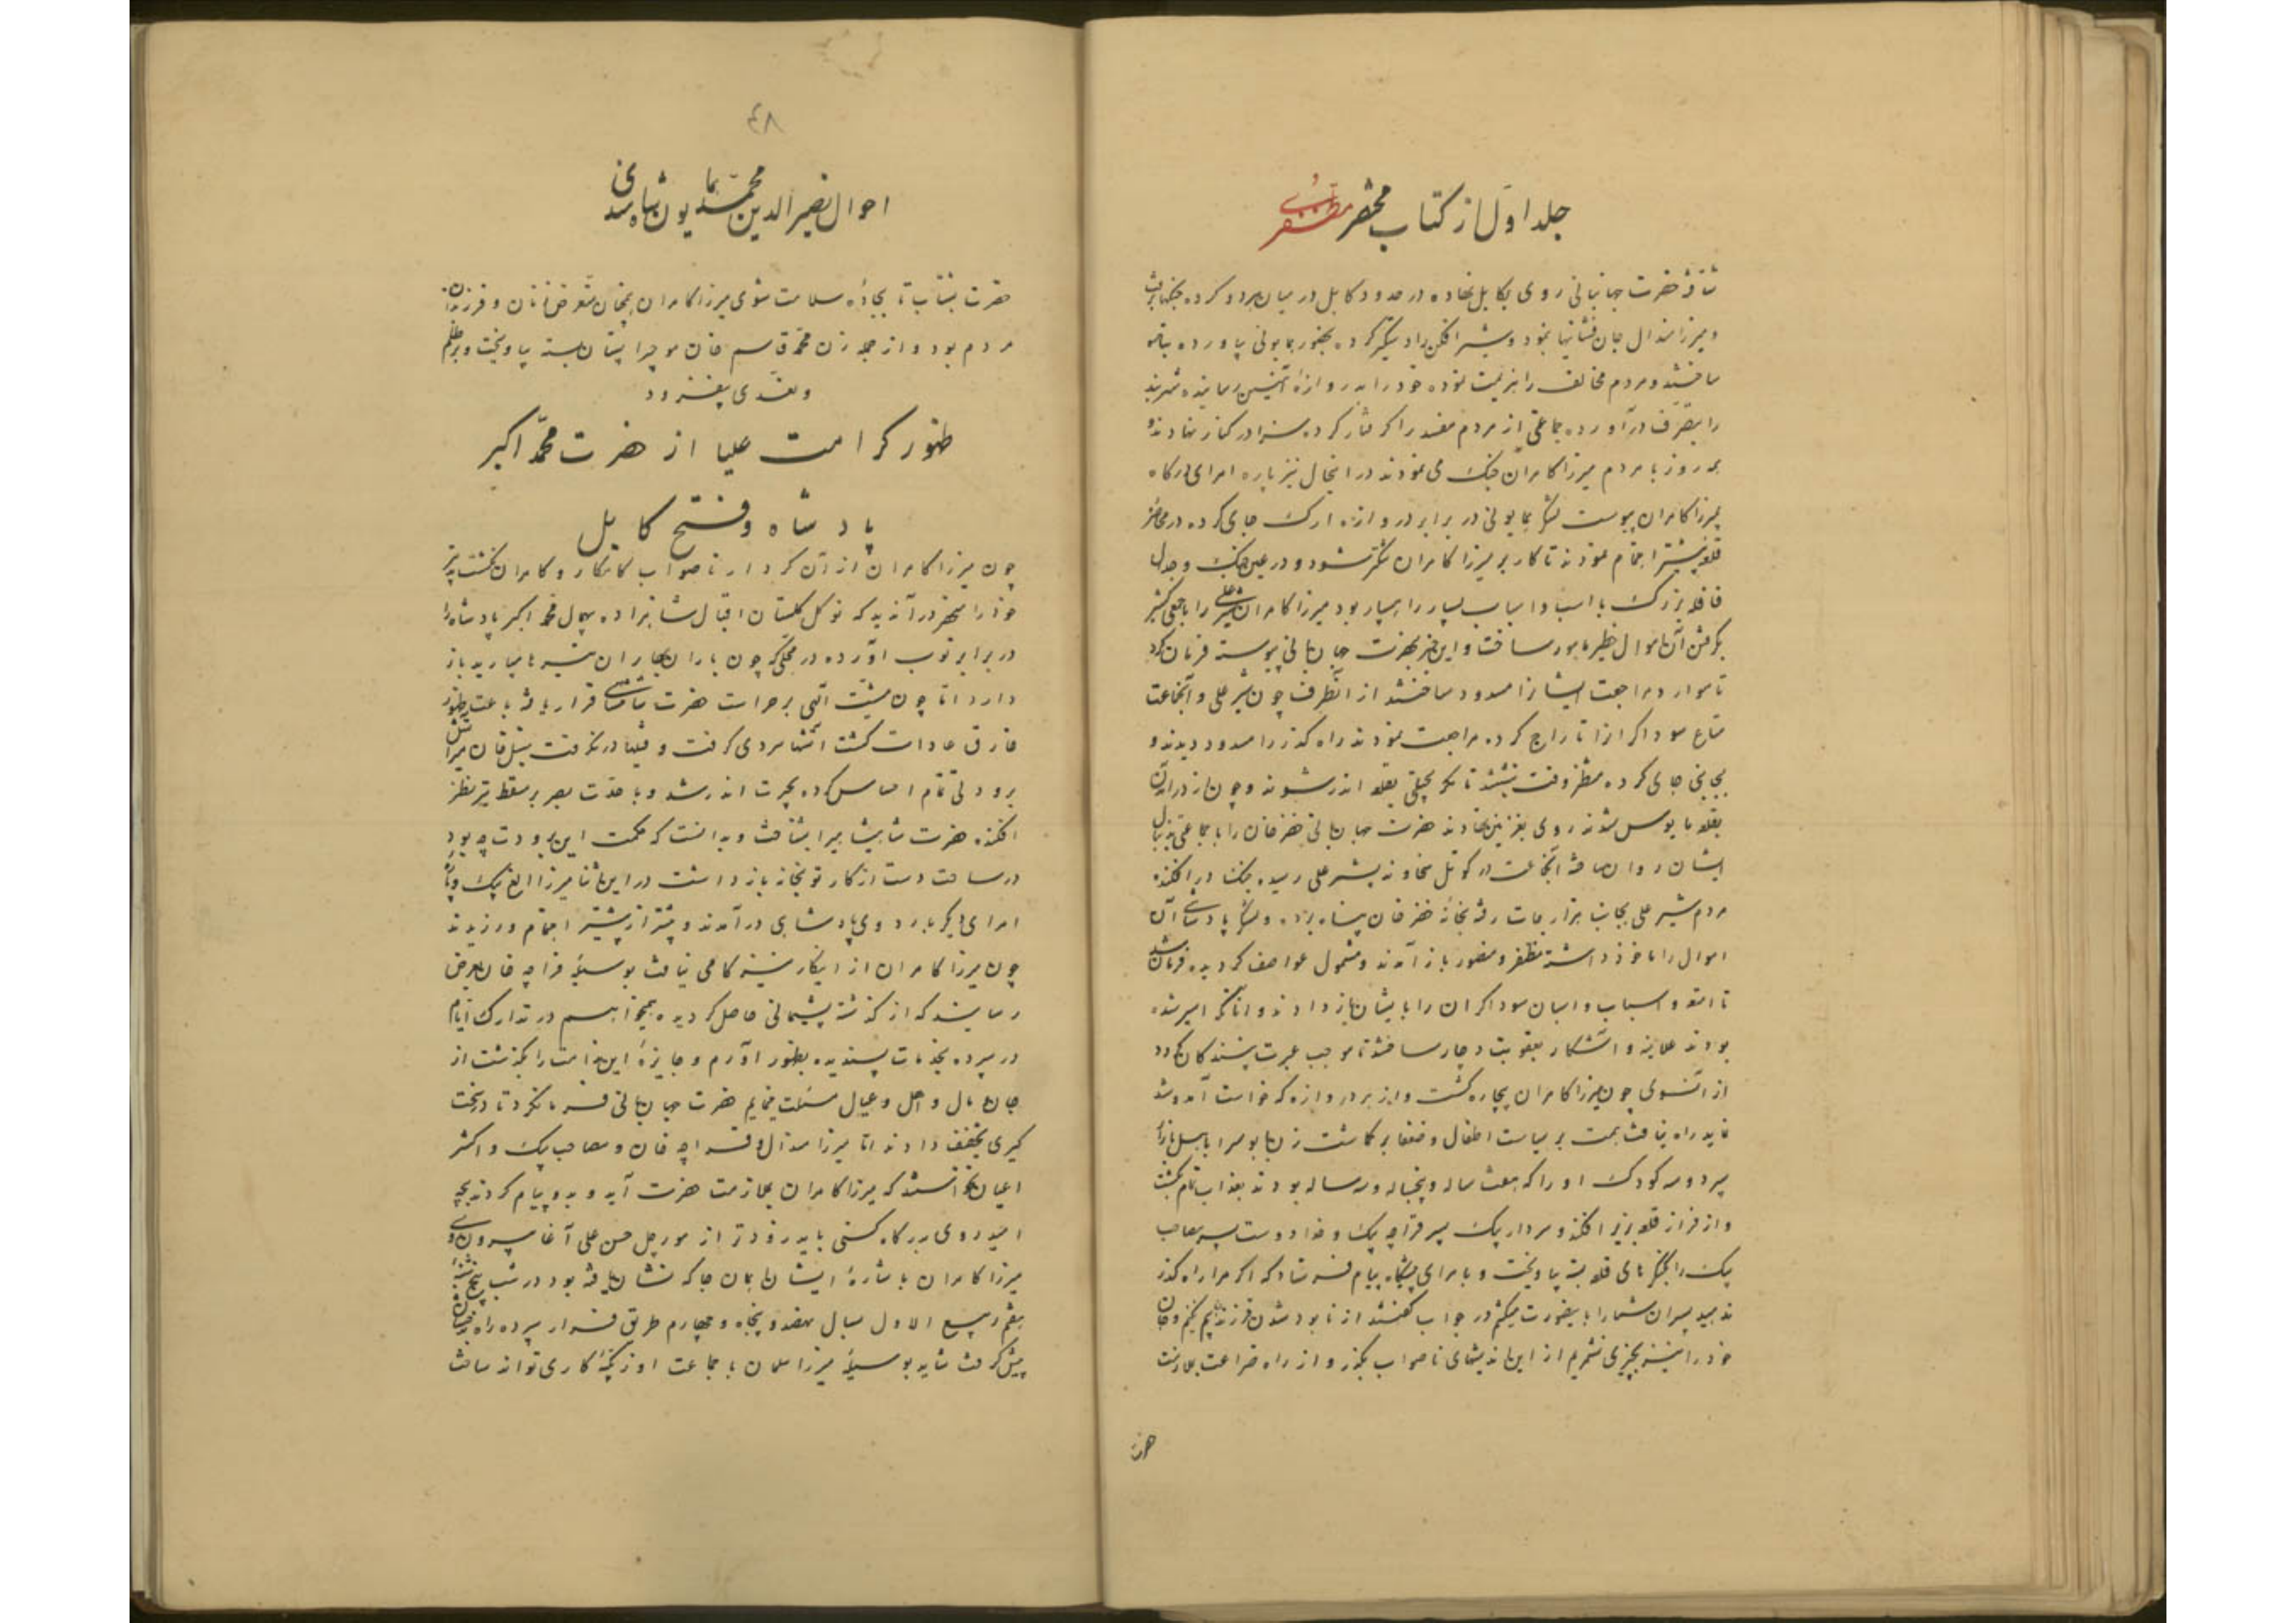 جلد اول از کتاب مختصر مظفری
حضرت جهانبانی روی بکابل نهاده در حدود کابل در میان هر دو کرده
و میرزا هندال جان فشانیها نمود و شیر افکن را دستگیر کرده بحضور همایونی بیاورده
ساختند و مردم مخالف را هزیمت نموده خود را بدروازهٔ آهنین رسانیده شهر بند
را بتصرف درآورده جماعتی از مردم مفسد را گرفتار کرده سزا در کنار نهادند و
همه روز با مردم میرزا کامران جنگ می نمودند در اینحال نیز پاره امرای درگاه
بمیرزا کامران پیوست لشکر همایونی در برابر دروازه ارک جای کرده در محاصره
قلعه بیشتر اهتمام نمودند تا کار بر میرزا کامران تنگتر شود و در عین جنگ و جدل
قافله بزرگ با اسب و اسباب بسیار راهسپار بود میرزا کامران شیر علی را با جمعی کثیر
بگرفتن آن اموال خطیر مامور ساخت و این خبر بحضرت جهانبانی پیوسته فرمان کرد
تا موارد مراجعت ایشان را مسدود ساختند از آنطرف چون شیر علی و آنجماعت
متاع سوداگران را تاراج کرده مراجعت نمودند راه گذر را مسدود دیدند و
بجایی جای کرده منتظر وقت بنشستند تا مگر بحیلتی بقلعه اندر شوند و چون از درآمدن
بقلعه مایوس شدند روی بغزنین نهادند حضرت جهانبانی خضر خان را با جماعتی بدنبال
ایشان روان ساخته آنجماعت در کوتل سجاوند بشیر علی رسیده جنگ در افکنده
مردم شیر علی بجانب هزارجات رفته بخانهٔ خضر خان پناه برده و لشکر پادشاهی آن
اموال را ماخوذ داشته مظفر و منصور باز آمدند و مشمول عواطف گردیده فرمان شد
تا امتعه و اسباب و اسبان سوداگران را بایشان باز دادند و آنانکه اسیر شده
بودند علانیه و آشکار بعقوبت دچار ساختند تا موجب عبرت بینندگان گردد
از آنسوی چون میرزا کامران بیچاره گشت و از هر دروازه که خواست آمد و شد
نماید راه نیافت همت بر سیاست اطفال و ضعفا بر گماشت زن بابوس را باهل بازار
سپرد و سه کودک او را که هفت ساله و پنجساله و سه ساله بودند بعذاب تمام بکشت
و از فراز قلعه بزیر افکند و سردار بیک پسر قراچه بیک و خدا دوست پسر مصاحب
بیک را بکنگرهای قلعه بسته بیاویخت و بامرای پیشگاه پیام فرستاد که اگر مرا راه گذر
ندهید پسران شما را باینصورت میکشم در جواب گفتند از نابود شدن فرزند بیم نکنیم و جان
خود را نیز بچیزی نشمریم از این اندیشهای ناصواب بگذر و از راه ضراعت بملازمت
حضرت
۴۸
احوال نصیر الدین محمد همایون شاه هندی
حضرت بشتاب تا بجادهٔ سلامت شوی میرزا کامران بمتعرض زنان و فرزندان
مردم بود و از جمله زن محمد قاسم خان موجی را پستان بسته بیاویخت و بر ظلم
و تعدی بیفزود
ظهور کرامت علیا از حضرت محمد اکبر
پادشاه و فتح کابل
چون میرزا کامران از آن کردار ناصواب کامکار و کامران نگشت تدبیر
خود را منحصر در آن دید که نو گل گلستان اقبال شاهزاده بیهمال محمد اکبر پادشاه را
در برابر توپ آورده در محلی که چون باران بهاران تیر میبارید باز
دارد اما چون مشیت الهی بر حراست حضرت شاهنشاهی قرار یافته باعث بظهور
خارق عادات گشت آتشها سردی گرفت و فتیلها در نگرفت سنبل خان میر آتش
برودتی تمام احساس کرده بحیرت اندر شد و با حدت بصر بر مسقط تیر نظر
افکنده حضرت شاهنشاهی را بشناخت و بدانست که حکمت این برودت چه بود
در ساعت دست از کار توپخانه باز داشت در این اثنا میرزا الغ بیک و
امرای دیگر باردوی پادشاهی درآمدند و بیشتر از پیشتر اهتمام ورزیدند
چون میرزا کامران از اینکار نیز کامی نیافت بوسیلهٔ قراچه خان بعرض
رسانید که از گذشته پشیمانی حاصل گردیده میخواهم در تدارک ایام
در سپرده بخدمات پسندیده بظهور آورم و جایزهٔ این ندامت را بگذشت از
جان و مال و اهل و عیال مسئلت نمایم حضرت جهانبانی فرمان کرد تا در سخت
گیری تخفیف دادند اما میرزا هندال و قراچه خان و مصاحب بیک و اکثر
اعیان نخواستند که میرزا کامران بملازمت حضرت آید و بدو پیام کردند بچه
امید روی بدرگاه کنی باید زودتر از مورچل حسن علی آغا بیرون شوی
میرزا کامران باشارهٔ ایشان بهمان جا که نشان یافته بود در شب پنجشنبه
هفتم ربیع الاول سال نهصد و پنجاه و چهارم طریق فرار سپرده راه بدخشان
پیش گرفت شاید بوسیلهٔ میرزا سلمان با جماعت اوزبکیه کاری تواند ساخت